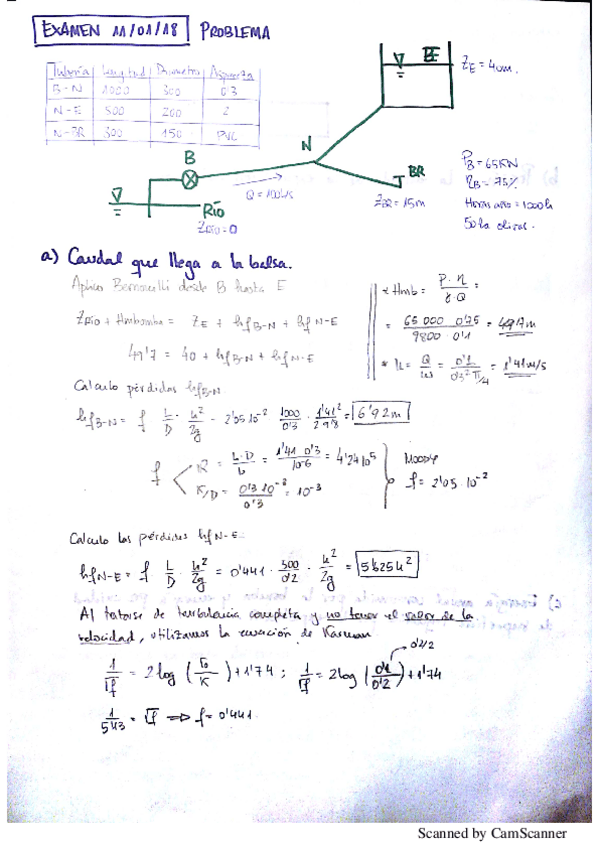 EXAMEN 11/01/18 PROBLEMA
Tubería Longitud Diametro Aspereza
B-N 1000 300 0'3
N-E 500 200 2
N-BR 300 150 PVC
BE
ZE = 40m.
N
B
BR
Q = 100 l/s
RÍO
ZRÍO = 0
ZBR = 15m
PB = 65KN
ηB = 75%
Horas año = 1000h
50 ha olivos.
a) Caudal que llega a la balsa.
Aplico Bernoulli desde B hasta E
ZRío + Hmbomba = ZE + hfB-N + hfN-E
49'7 = 40 + hfB-N + hfN-E
* Hmb = P·η / γ·Q =
= 65 000 0'75 / 9800 · 0'1 = 49'7m
* u = Q/ω = 0'1 / 0'3² π/4 = 1'41 m/s
Calculo pérdidas hfB-N
hfB-N = f · L/D · u²/2g = 2'05 10⁻² · 1000/0'3 · 1'41²/2 9'8 = 6'92m
f
R = u·D/υ = 1'41 0'3 / 10⁻⁶ = 4'24 10⁵
K/D = 0'3 10⁻³ / 0'3 = 10⁻³
MOODY
f = 2'05 · 10⁻²
Calculo las pérdidas hfN-E
hfN-E = f L/D u²/2g = 0'441 · 500/0'2 · u²/2g = 56'25u²
Al tratarse de turbulencia completa y no tener el valor de la
velocidad, utilizamos la ecuación de Karman
1/√f = 2 log (r₀/K) + 1'74 ; 1/√f = 2 log (0'1/0'2) + 1'74
0'2/2
= √f ⇒ f = 0'441
Scanned by CamScanner